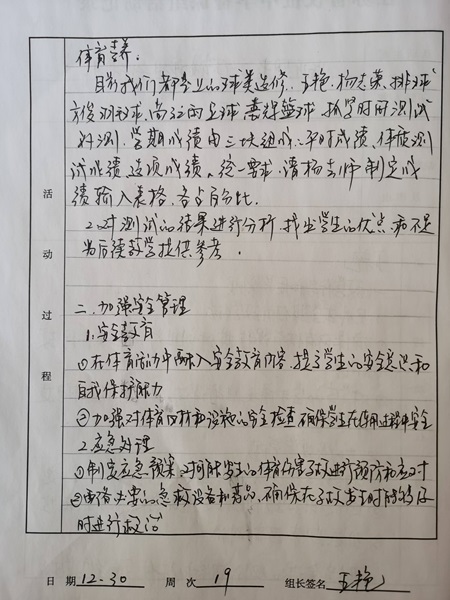 体育素养。
目前我们都专业的球类选修，王艳、杨志荣、排球
方俊羽毛球、尚江网球、篮球、抓学时间测试
好测，学期成绩由三块组成、平时成绩、体质测
试成绩、选项成绩。统一要求，请杨老师制定成
绩输入表格，各占百分比。
2.对测试的结果进行分析，找出学生的优点和不足
为后续教学提供参考。
二、加强安全管理
1.安全教育
①在体育活动中融入安全教育内容，提高学生的安全意识和
自我保护能力
②加强对体育器材和设施的安全检查，确保学生在使用过程中安全
2.应急处理
①制定应急预案，对可能发生的体育伤害事故进行预防和应对
②申请必要的急救设备和药品，确保在事故发生时能够及
时进行救治
活动过程
日 期 12.30 周 次 19 组长签名 王艳